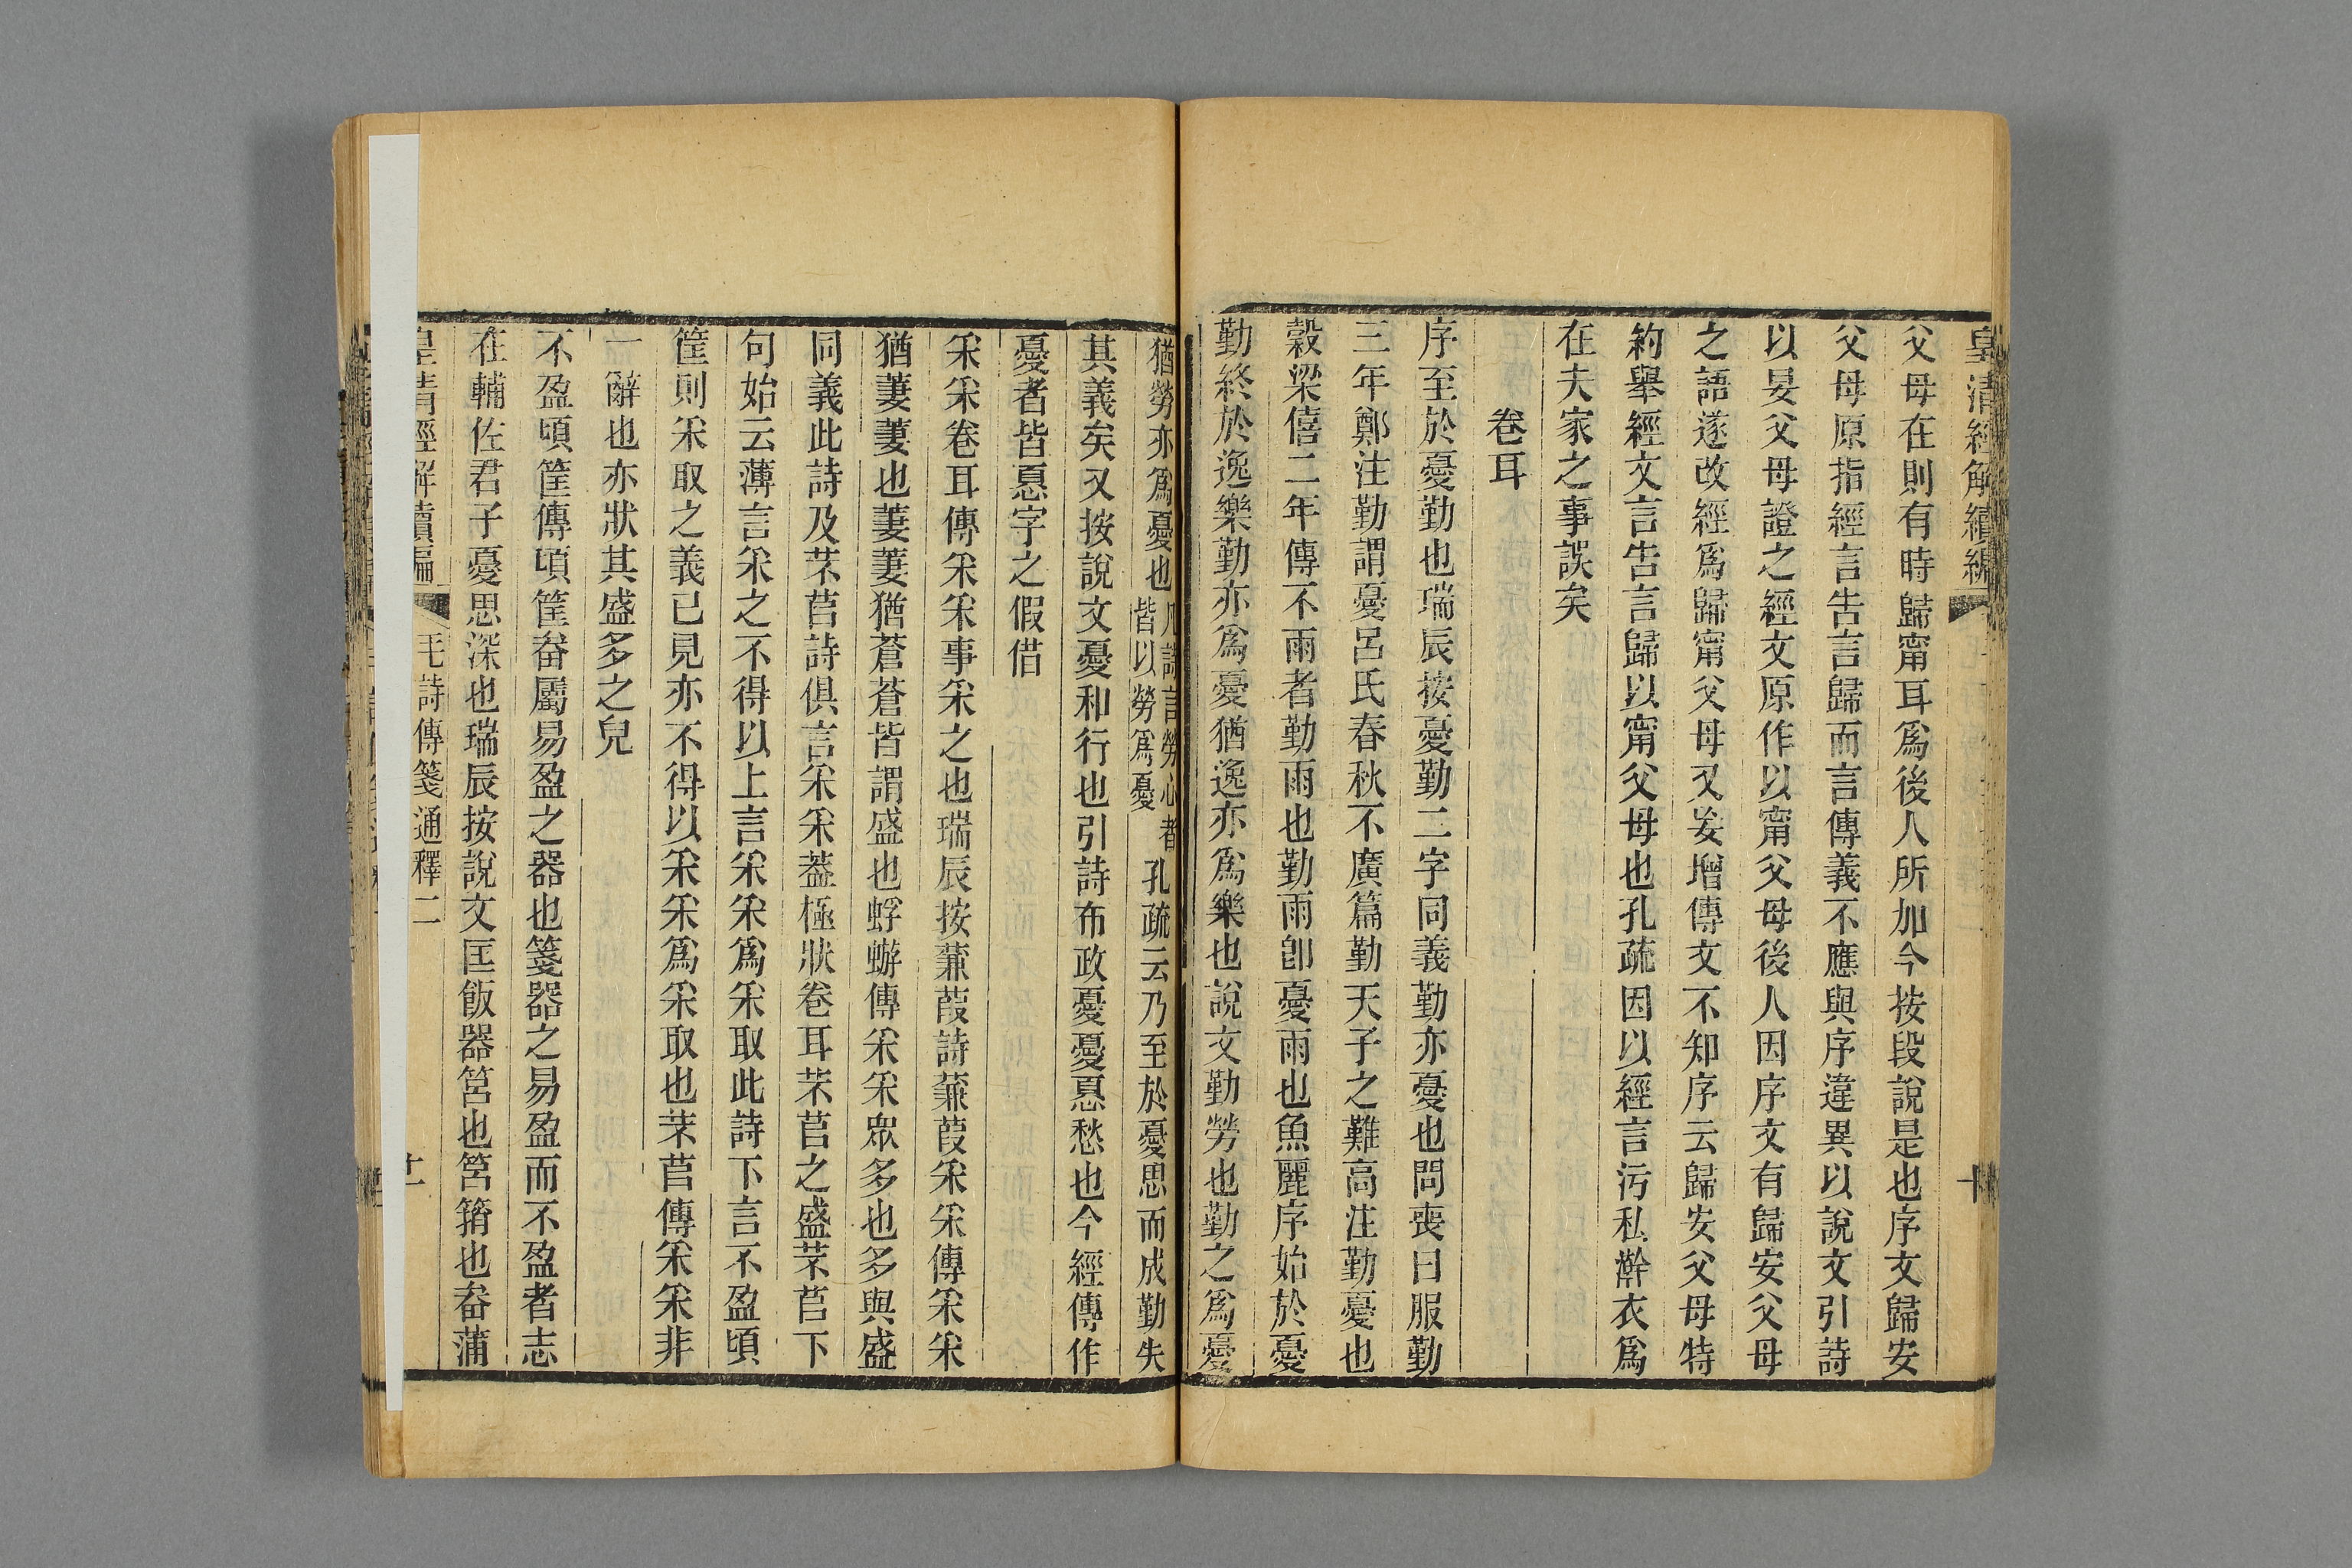 皇清經解續編
十
父母在則有時歸甯耳爲後人所加今按段說是也序文歸安
父母原指經言告言歸而言傳義不應與序違異以說文引詩
以晏父母證之經文原作以甯父母後人因序文有歸安父母
之語遂改經爲歸甯父母又妄增傳文不知序云歸安父母特
約舉經文言告言歸以甯父母也孔疏因以經言污私澣衣爲
在夫家之事誤矣
卷耳
序至於憂勤也瑞辰按憂勤二字同義勤亦憂也問喪曰服勤
三年鄭注勤謂憂呂氏春秋不廣篇勤天子之難高注勤憂也
穀梁僖二年傳不雨者勤雨也勤雨卽憂雨也魚麗序始於憂
勤終於逸樂勤亦爲憂猶逸亦爲樂也說文勤勞也勤之爲憂
猶勞亦爲憂也凡詩言勞心者皆以勞爲憂孔疏云乃至於憂思而成勤失
其義矣又按說文憂和行也引詩布政憂憂惪愁也今經傳作
憂者皆惪字之假借
采采卷耳傳采采事采之也瑞辰按蒹葭詩蒹葭采采傳采采
猶萋萋也萋萋猶蒼蒼皆謂盛也蜉蝣傳采采眾多也多與盛
同義此詩及芣苢詩俱言采采葢極狀卷耳芣苢之盛芣苢下
句始云薄言采之不得以上言采采爲采取此詩下言不盈頃
筐則采取之義已見亦不得以采采爲采取也芣苢傳采采非
一辭也亦狀其盛多之皃
不盈頃筐傳頃筐畚屬易盈之器也箋器之易盈而不盈者志
在輔佐君子憂思深也瑞辰按說文匡飯器筥也筥䈰也畚蒲
皇清經解續編
毛詩傳箋通釋二
十一